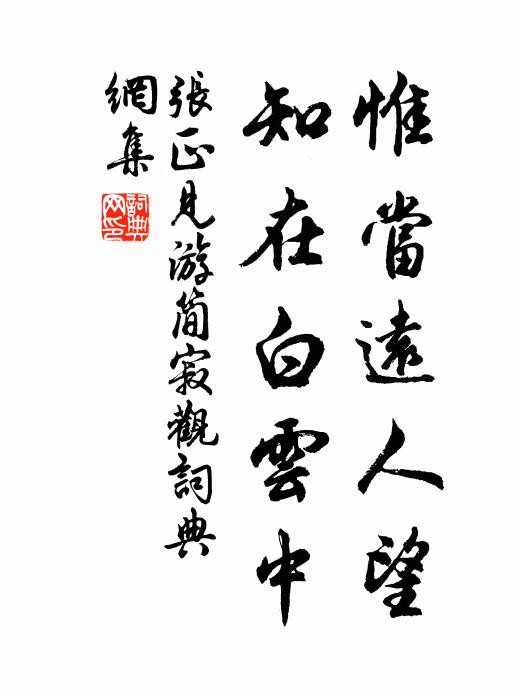 惟當遠人望
知在白雲中
張正見游简寂觀詞典
網集
詞典
网印